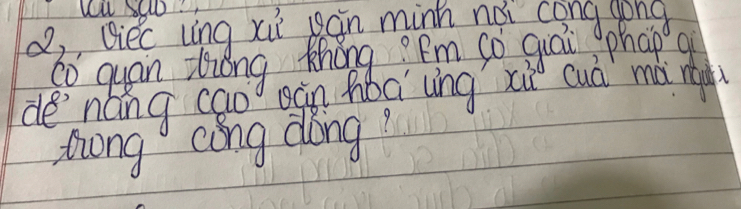 câu sau?
2, Việc ứng xử văn minh nơi công cộng
có quan trọng không? Em có giải pháp gì
để nâng cao văn hoá ứng xử của mọi người
trong cộng đồng?